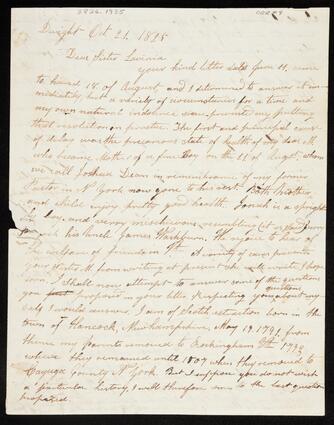 3226.1935
Dwight Oct 21. 1825
Dear Sister Lavinia
your kind letter date June 11, came
to hand 18. of August, and I determined to answer it im
mediately, but a variety of circumstances for a time and
my own natural indolence have prevented my putting
that resolution in practice. The first and principal cause
of delay was the precarious state of health of my dear M.
who became Mother of a fine Boy on the 22 of Augst, whom
we call Joshua Dean in remembrance of my former
Pastor in N York now gone to his rest. Both Mother,
and child enjoy pretty good health. Josiah is a sprightly
boy and very mischievous resembling
with his Uncle James Washburn. We rejoice to hear of
the welfare of friends in Vt. A variety of cares prevents
your sister M from writing at present
soon. I shall now attempt to answer some of the questions
you propose in your letter respecting
only I would answer, I am of Scotch extraction born in the
town of Hancock, Newhampshire, May 19. 1791 from
thence my parents removed to Rockingham Vt. 1792
where they remained until 1807 when they removed to
Cayuga County N York. But I suppose you do not wish
a particular history, I will therefore come to the last question
proposed.